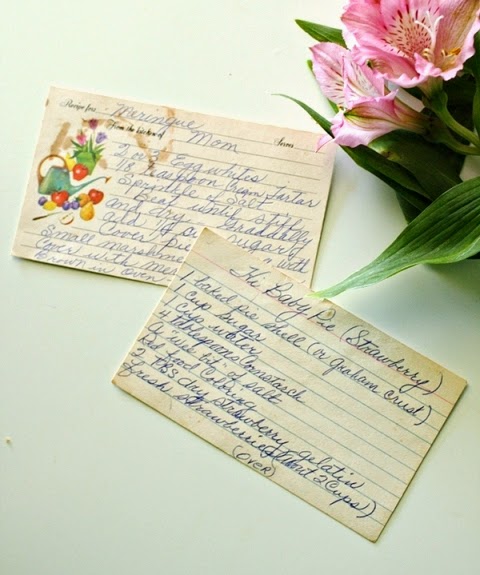 Recipe for: Meringue
From the kitchen of Mom Serves
2 or 3 Egg whites
1/8 teaspoon cream tartar
Sprinkle of salt
Beat until stiffly
and dry - Gradually
add 1/4 c. sugar
Cover pie with
Small marshme
Cover with mer
Brown in oven
Hi Baby Pie (Strawberry)
1 baked pie shell (or graham crust)
1 cup sugar
1 cup water
4 tablespoons cornstarch
A wee bit of salt
Red food coloring
2 TBS dry strawberry gelatin
fresh strawberries (about 2 cups)
(OVER)